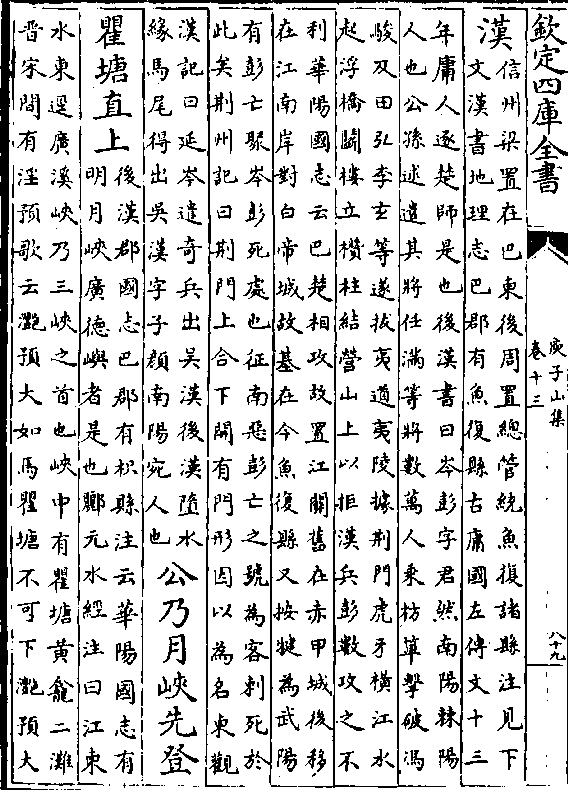 欽定四庫全書
庾子山集
卷十三
八十九
漢信州梁置在巴東後周置總管統魚復諸縣注見下
文漢書地理志巴郡有魚復縣古庸國左傳文十三
年庸人逐楚師是也後漢書曰岑彭字君然南陽棘陽
人也公孫述遣其將任滿等將數萬人乘枋箄擊破馮
駿及田弘李玄等遂拔夷道夷陵據荆門虎牙橫江水
起浮橋鬬樓立欑柱結營山上以拒漢兵彭數攻之不
利華陽國志云巴楚相攻故置江關舊在赤甲城後移
在江南岸對白帝城故基在今魚復縣又按犍為武陽
有彭亡聚岑彭死處也征南惡彭亡之號為客刺死於
此矣荆州記曰荆門上合下開有門形因以為名東觀
漢記曰延岑遣奇兵出吳漢後漢墮水
緣馬尾得出吳漢字子顔南陽宛人也
公乃月峽先登
瞿塘直上
後漢郡國志巴郡有枳縣注云華陽國志有
明月峽廣德嶼者是也酈元水經注曰江東
水東逕廣溪峽乃三峽之首也峽中有瞿塘黃龕二灘
晋宋間有淫預歌云灔預大如馬瞿塘不可下灔預大